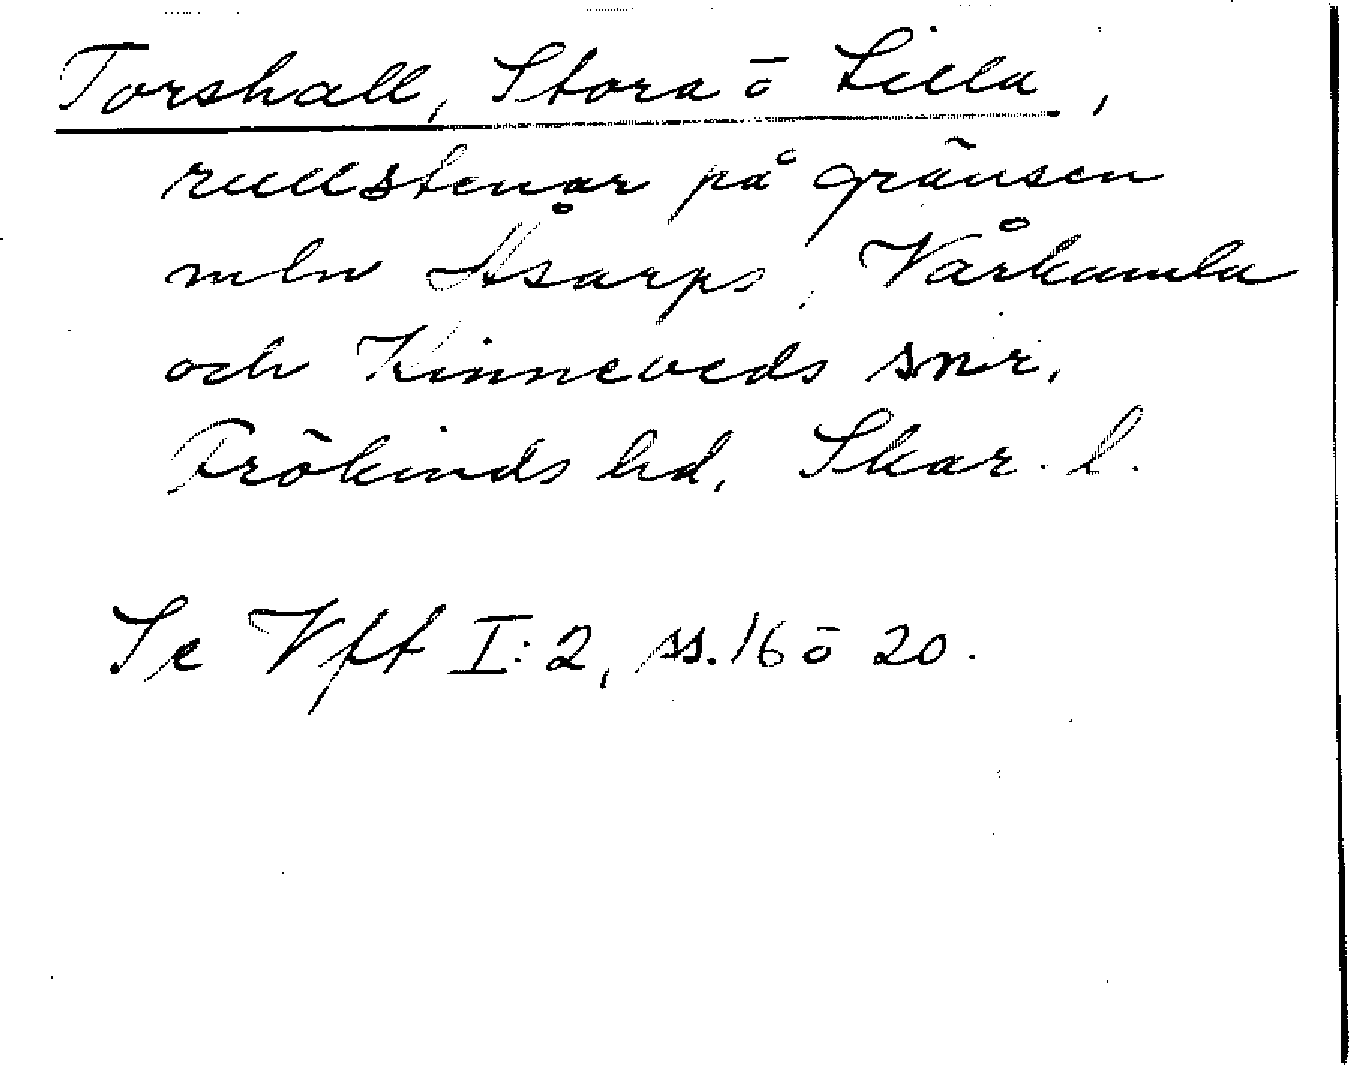 Torshall, Stora ō Lilla,
rullstenar på gränsen
mln Åsarps, Vårkumla
och Kinneveds snr.
Frökinds hd, Skar. l.
Se Vft I:2, ss. 16 ō 20.